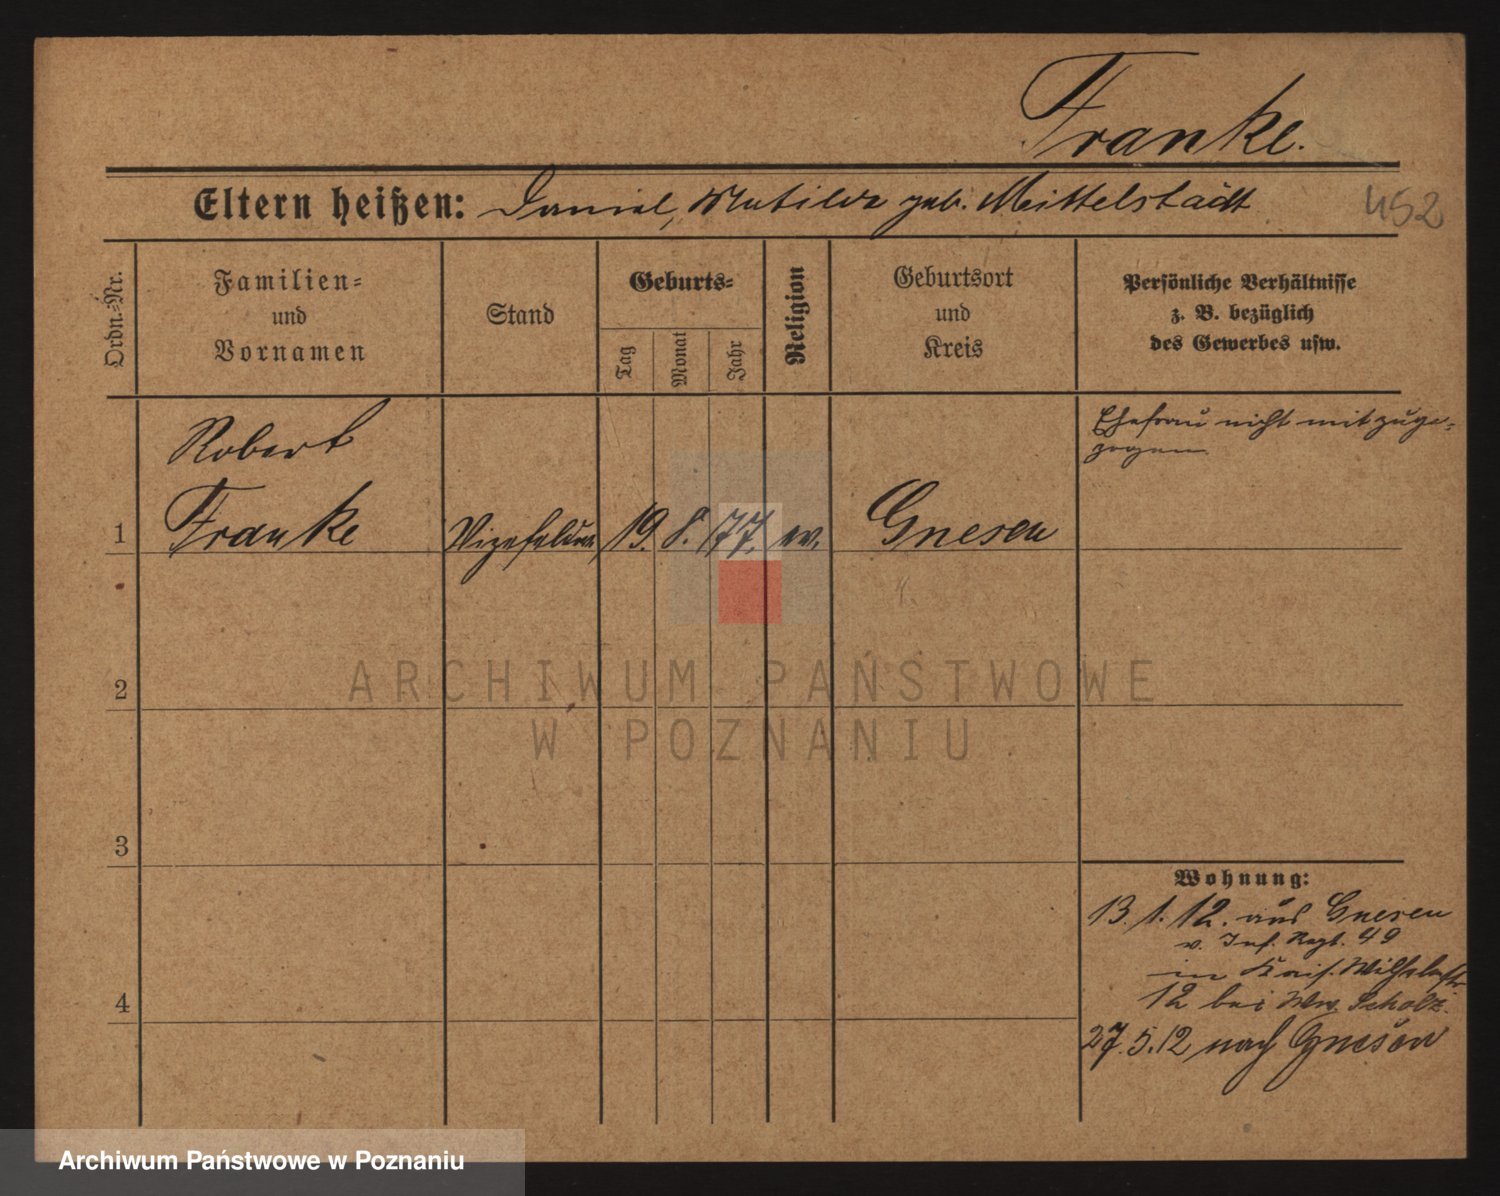 Franke.
Eltern heißen: Daniel, Matilde geb. Mittelstädt
452
Ordn.-Nr.
Familien-
und
Vornamen
Stand
Geburts-
Tag
Monat
Jahr
Religion
Geburtsort
und
Kreis
Persönliche Verhältnisse
z. B. bezüglich
des Gewerbes usw.
Ehefrau nicht mitzuge-
zogen
Robert
1 Franke Vizefeldw. 19. 8. 77. ev. Gnesen
2
3
4
ARCHIWUM PAŃSTWOWE
W POZNANIU
Wohnung:
13. 1. 12. aus Gnesen
v. Inf. Regt. 49
in Kais. Wilhelmstr
12 bei Ww. Scholz.
27. 5. 12 nach Gnesen
Archiwum Państwowe w Poznaniu